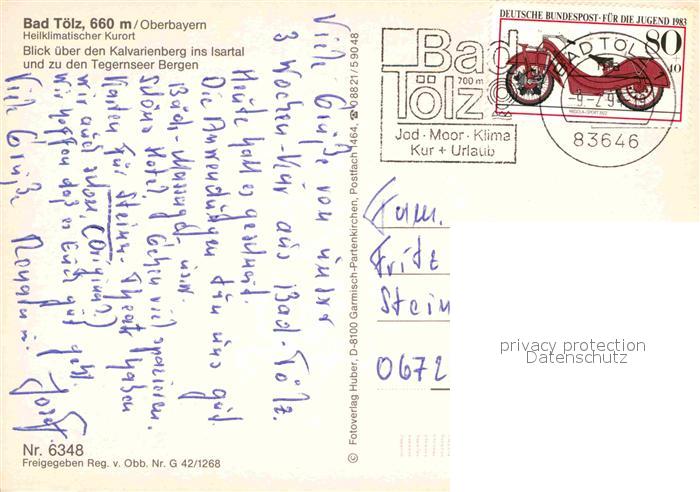 Bad Tölz, 660 m/Oberbayern
Heilklimatischer Kurort
Blick über den Kalvarienberg ins Isartal
und zu den Tegernseer Bergen
Viele Grüße von unsrer
3 Wochen-Kur aus Bad-Tölz.
Heute hat es geschneit.
Die Anwendungen tun uns gut
Bäder-Massagen usw.
schönes Hotel, Gehen viel spazieren.
Karten für Steiner-Theat. haben
wir auch schon,
Wir hoffen daß es Euch gut geht.
Viele Grüße Renate u. Josef
Nr. 6348
Freigegeben Reg. v. Obb. Nr. G 42/1268
© Fotoverlag Huber, D-8100 Garmisch-Partenkirchen, Postfach 1464, ☎ 0 88 21/5 90 48
Bad
700 m
Tölz
Jod · Moor · Klima
Kur + Urlaub
DEUTSCHE BUNDESPOST · FÜR DIE JUGEND 1983
80
+40
MEGOLA-SPORT 1922
BAD TÖLZ
83646
Fam.
Fritz
Stein
0672
privacy protection
Datenschutz